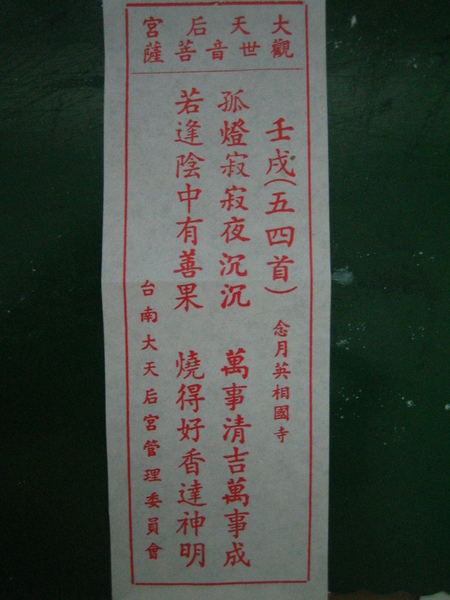 大天后宮
觀世音菩薩
壬戌(五四首) 念月英相國寺
孤燈寂寂夜沉沉 萬事清吉萬事成
若逢陰中有善果 燒得好香達神明
台南大天后宮管理委員會